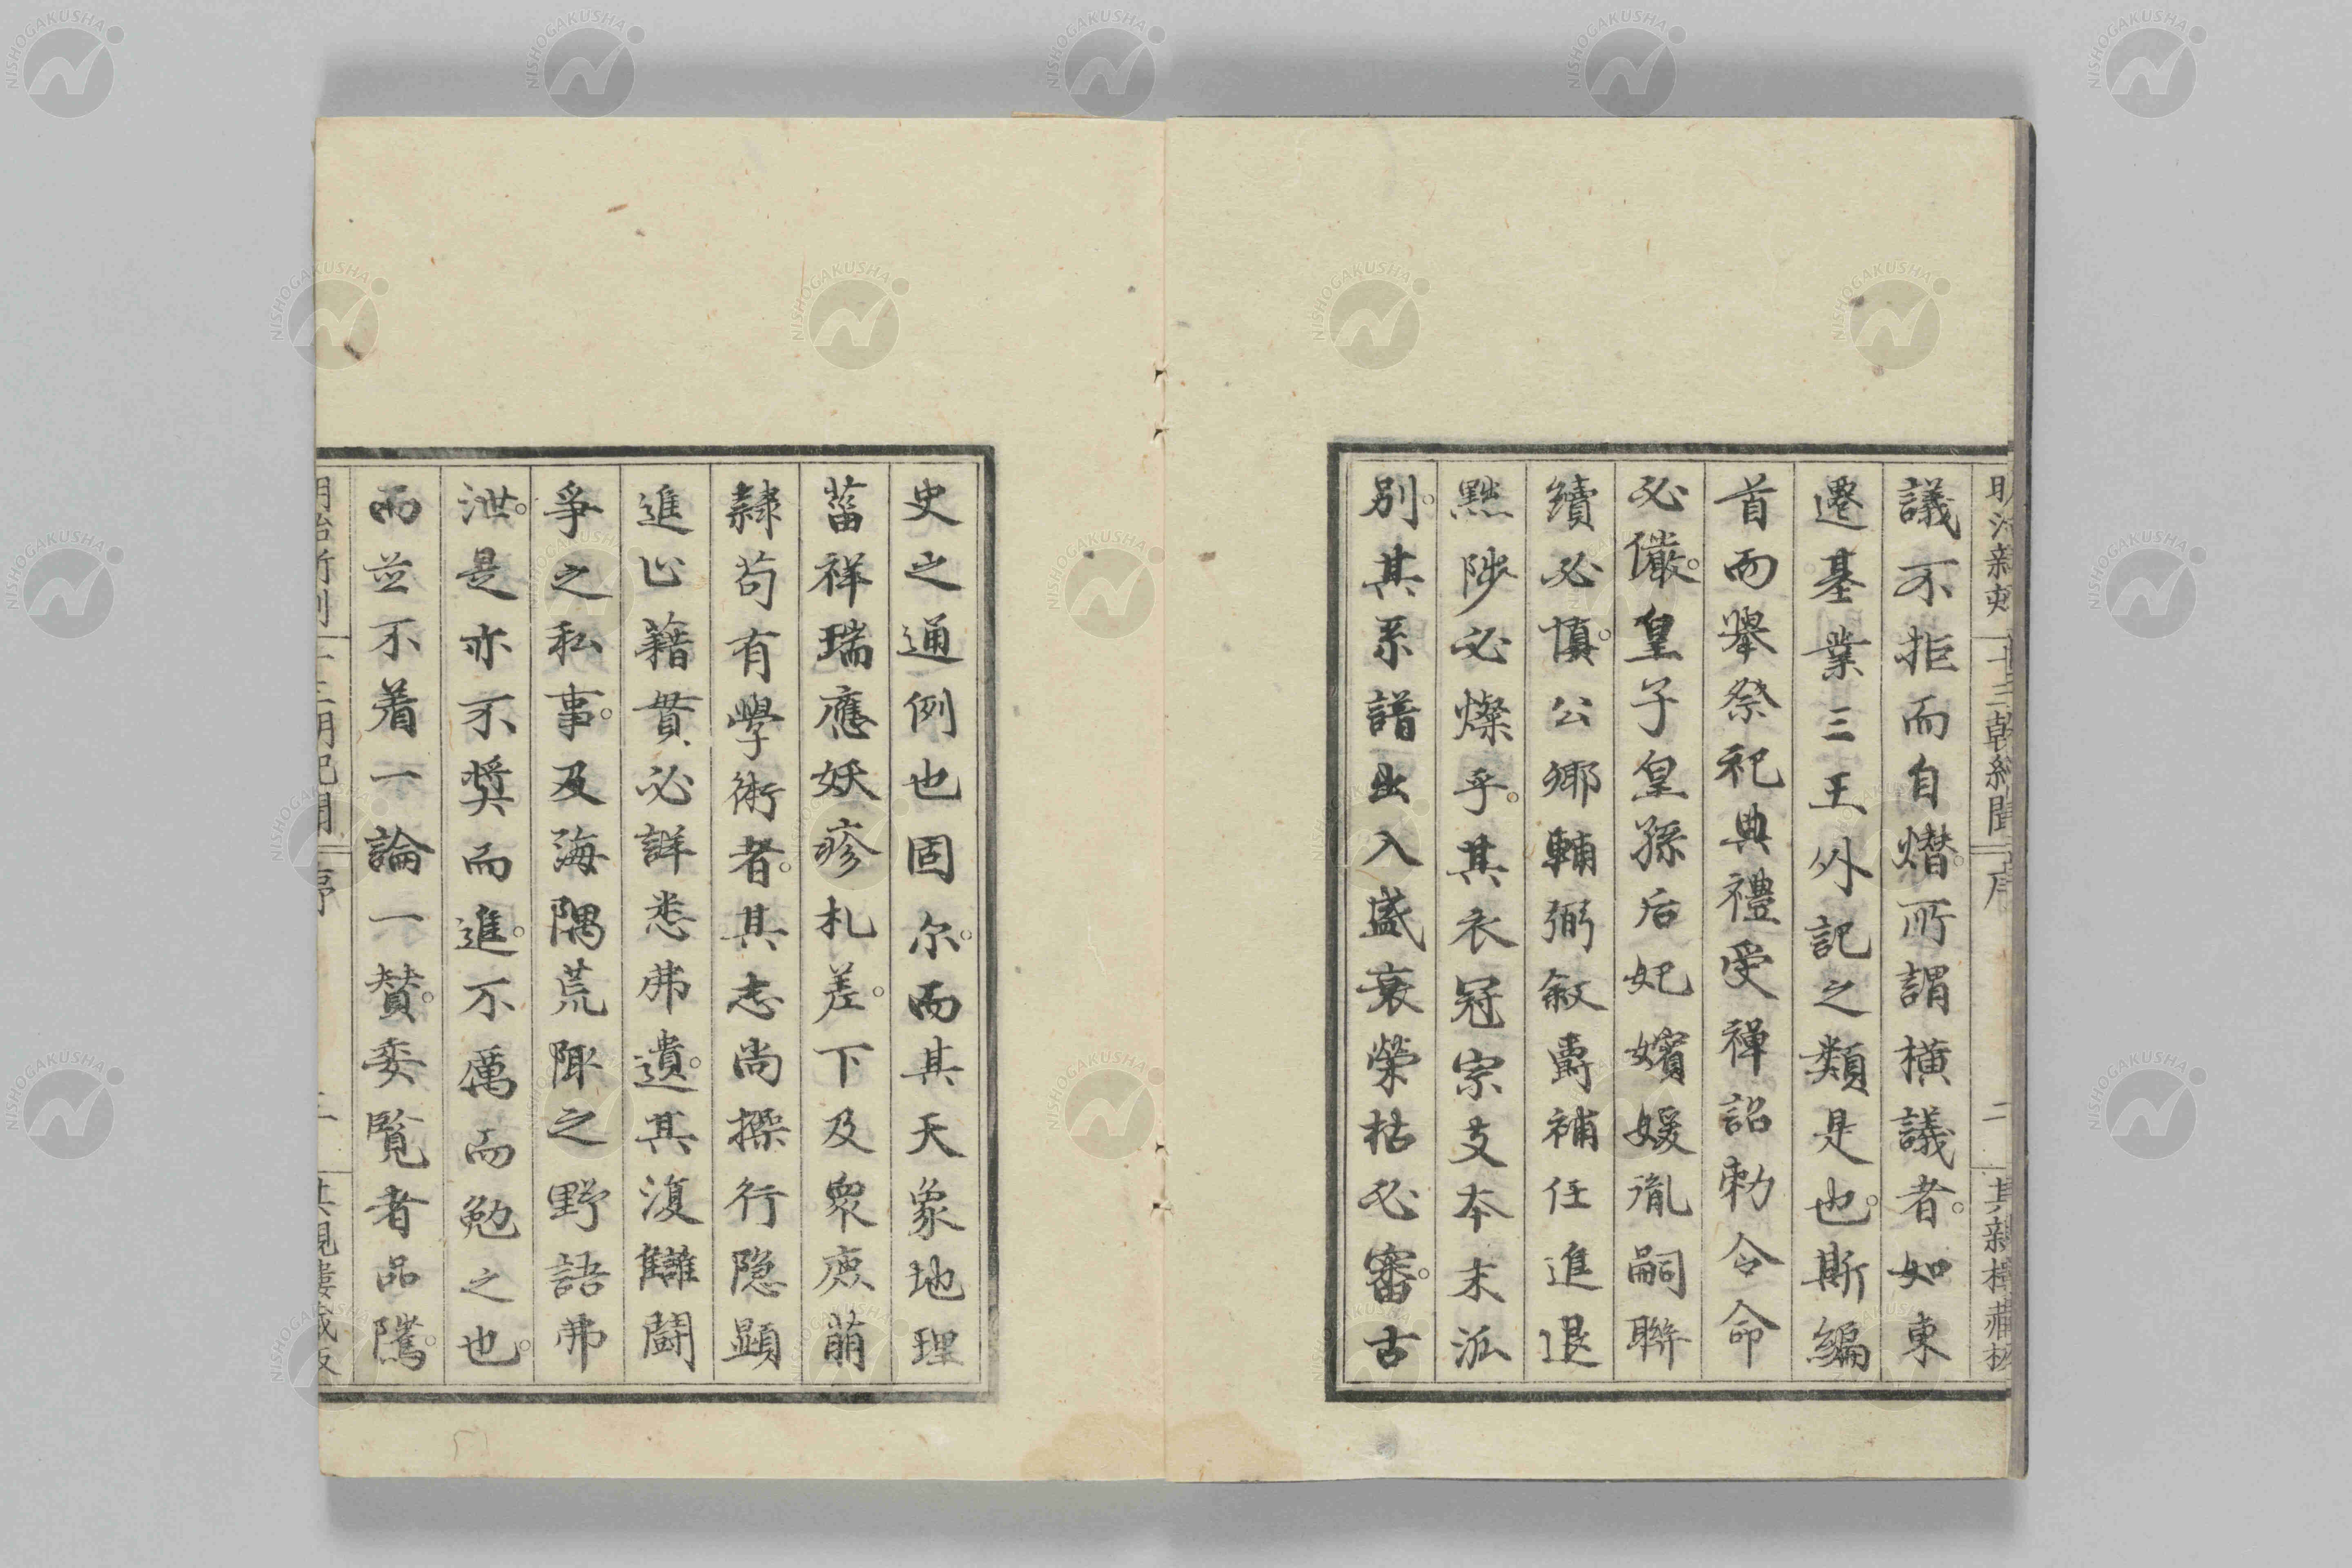 議不拒而自熸。所謂横議者。如東
遷基業三王外記之類是也。斯編
首而舉祭祀典禮受禅詔勅令命
必儼。皇子皇孫后妃嬪媛胤嗣聯
續必慎。公卿輔弼叙爵補任進退
黜陟必燦乎。其衣冠宗支本末派
別。其系譜出入盛衰榮枯必審。古
史之通例也固尔。而其天象地理
菑祥瑞應妖疹札差。下及衆庶萌
隷苟有學術者。其志尚操行隠顕
進止藉貫必詳悉弗遺。其復讎鬪
爭之私事。及海隅荒陬之野語弗
泄。是亦不奨而進。不厲而勉之也。
而並不着一論一賛。委覧者品隲。
十三朝紀聞 序 二
NISHOGAKUSHA